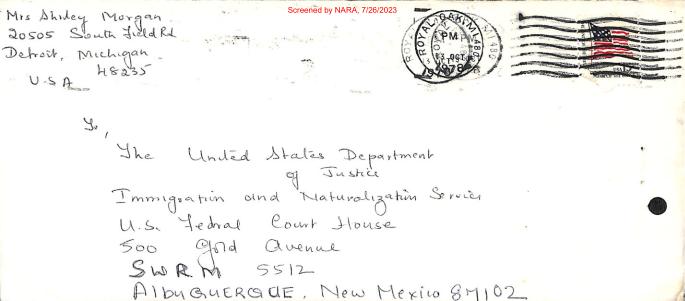 Screened by NARA, 7/26/2023
Mrs Shirley Morgan
20505 South Field Rd
Detroit, Michigan
48235
U.S.A
ROYAL OAK, MI 480
PM
OCT
1978
To,
The United States Department
of Justice
Immigration and Naturalization Service
U.S. Fedral Court House
500 Gold Avenue
SWRM 5512
ALBUQUERQUE, New Mexico 87102